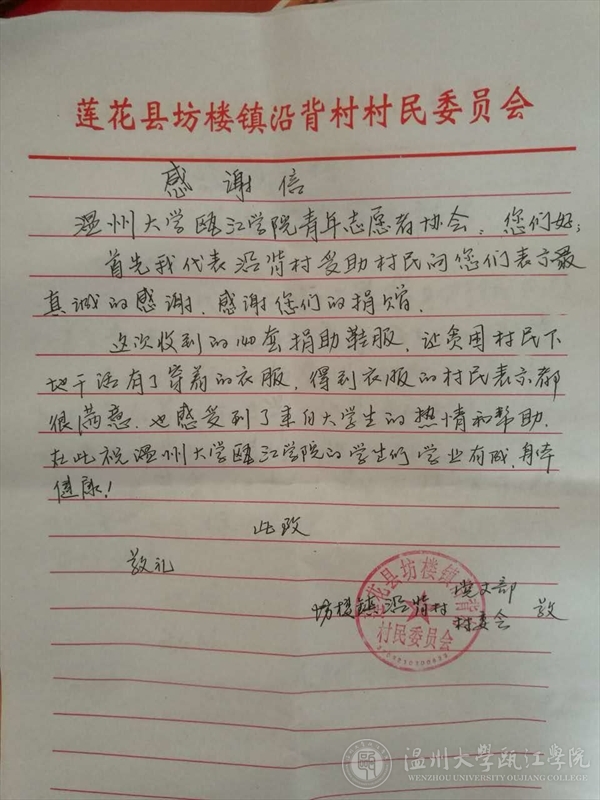 莲花县坊楼镇沿背村村民委员会
感谢信
温州大学瓯江学院青年志愿者协会，您们好：
首先我代表沿背村受助村民向您们表示最
真诚的感谢，感谢您们的捐赠。
这次收到的100套捐助鞋服，让贫困村民下
地干活有了穿着的衣服，得到衣服的村民表示都
很满意，也感受到了来自大学生的热情和帮助。
在此祝温州大学瓯江学院的学生们学业有成，身体
健康！
此致
敬礼
坊楼镇沿背村 党支部
村委会 敬
莲花县坊楼镇沿背
村民委员会
温州大学瓯江学院
WENZHOU UNIVERSITY OUJIANG COLLEGE